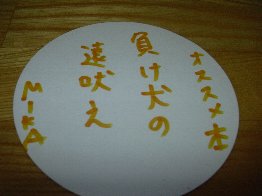 オススメ本
負け犬の
遠吠え
MIKA